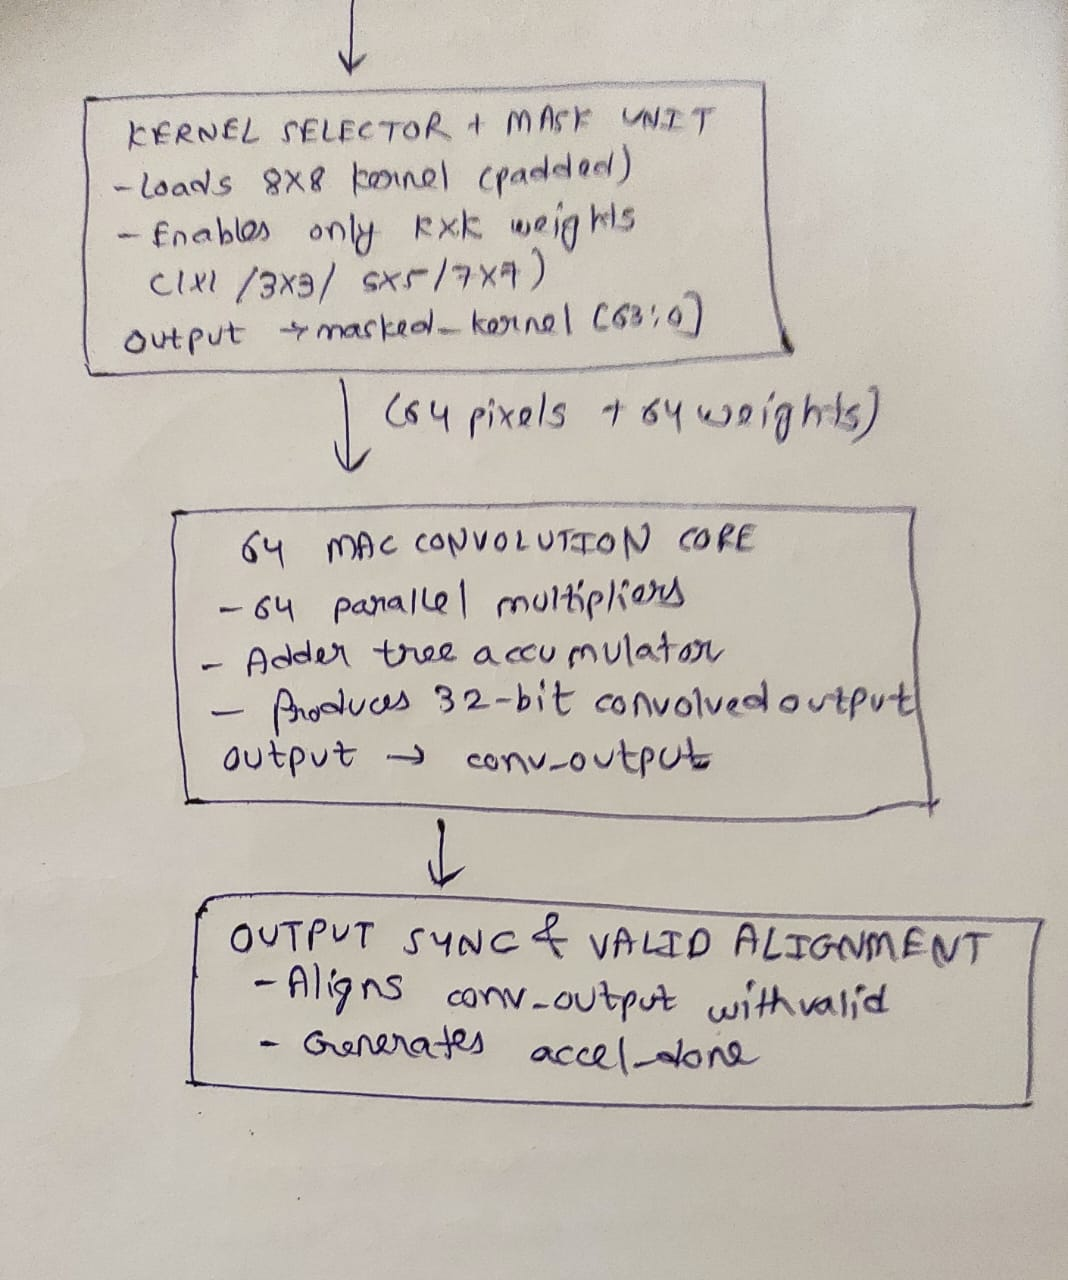 KERNEL SELECTOR + MASK UNIT
- Loads 8X8 kernel (padded)
- Enables only KXK weights
(1X1 /3X3/ 5X5/7X7)
Output → masked_kernel [63:0]
(64 pixels + 64 weights)
64 MAC CONVOLUTION CORE
- 64 parallel multipliers
- Adder tree accumulator
- Produces 32-bit convolved output
output → conv_output
OUTPUT SYNC & VALID ALIGNMENT
- Aligns conv_output with valid
- Generates accel_done